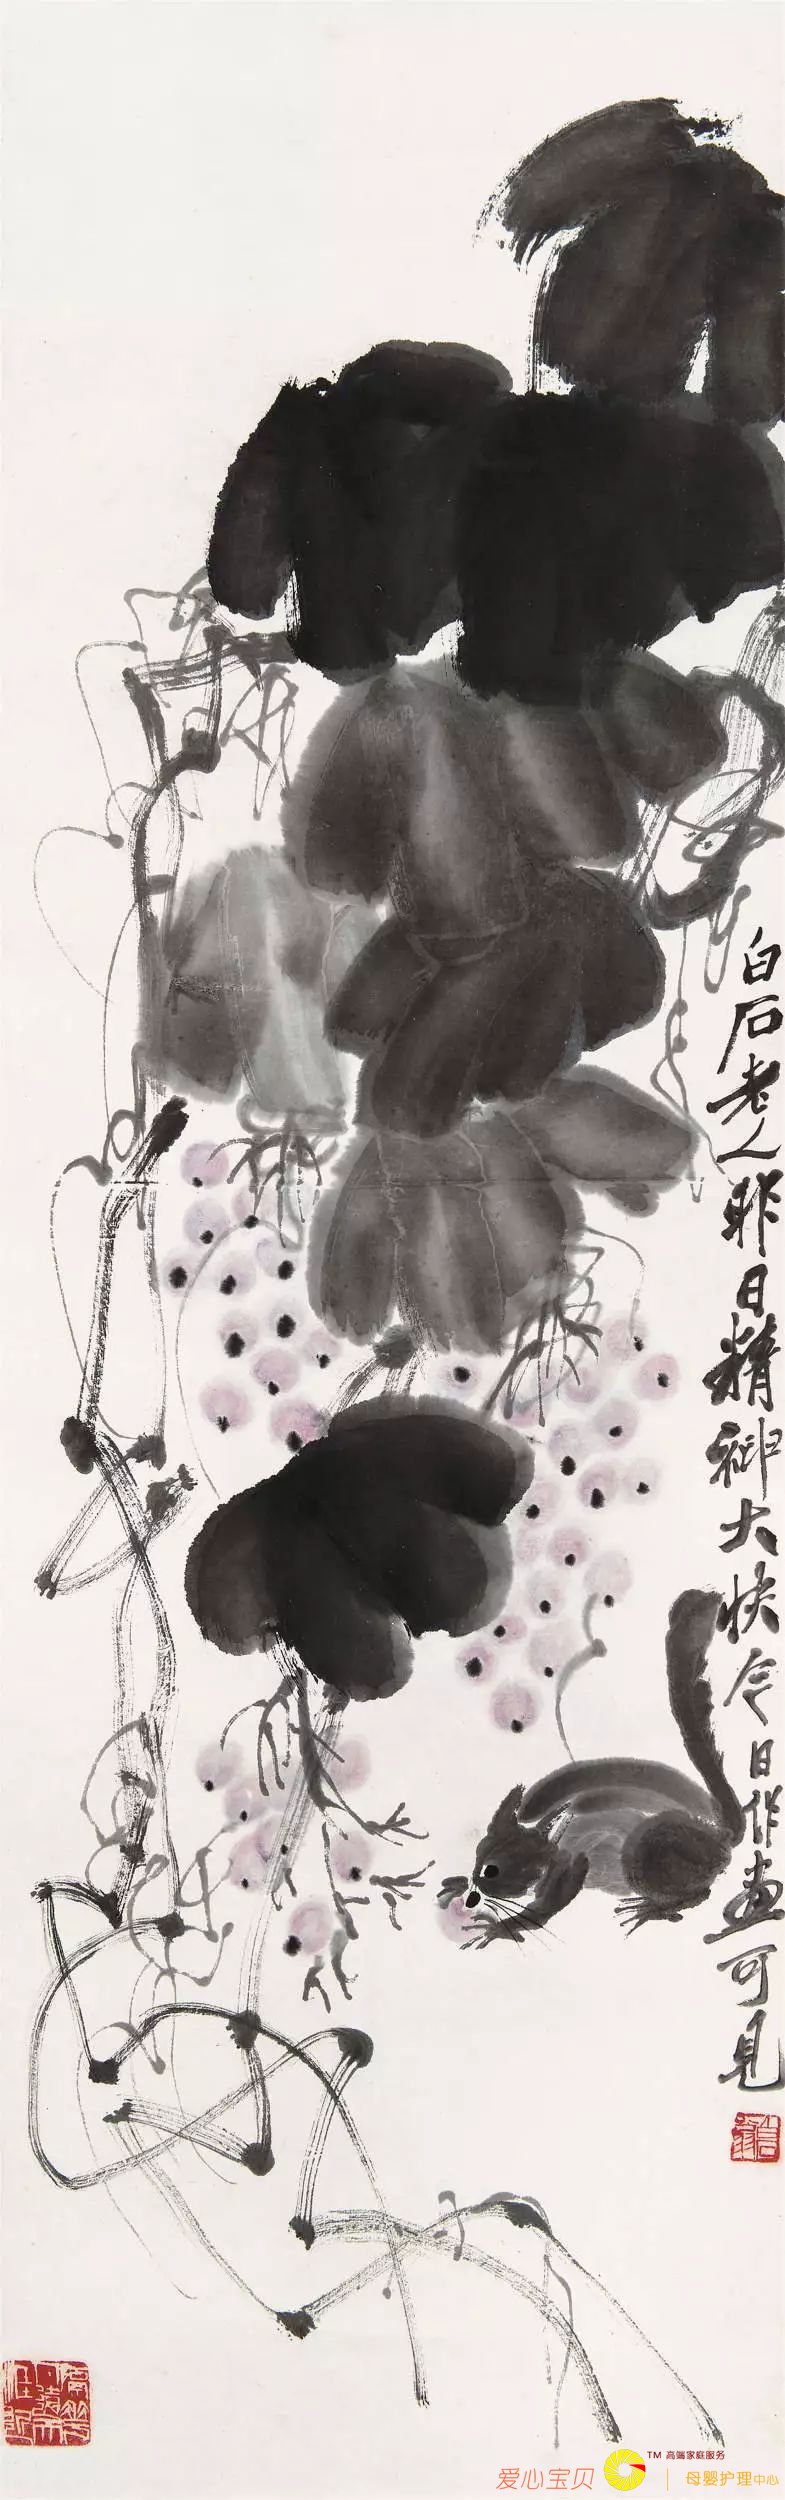 白石老人昨日精神大快今日作画可见
爱心宝贝
TM 高端家庭服务
母婴护理中心